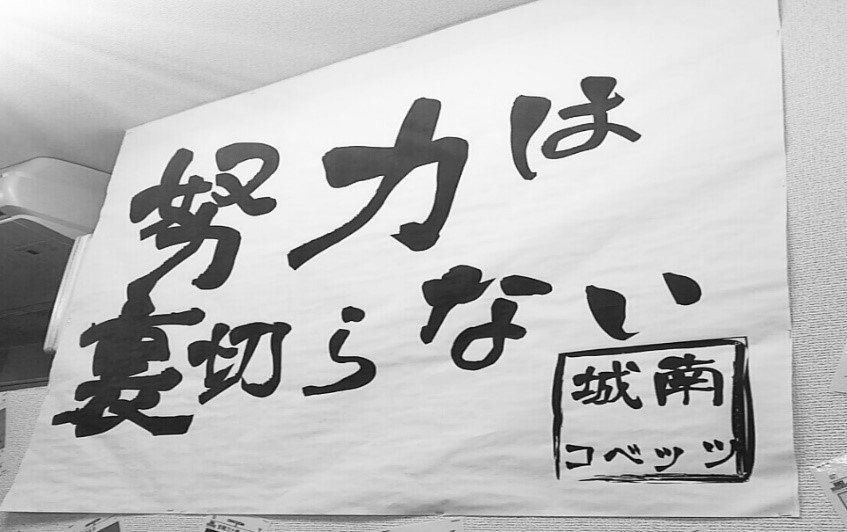 努力は
裏切らない
城南
コベッツ